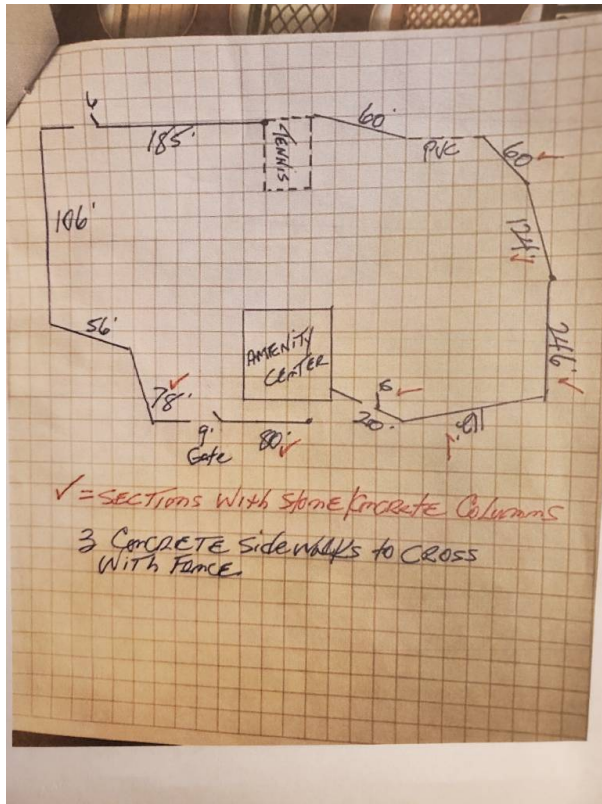 185'
TENNIS
60'
PVC
60'
106'
124'
56'
AMENITY
CENTER
246'
78'
6
20'
9'
Gate
80'
✓ = SECTIONS With Stone/Concrete Columns
3 CONCRETE Sidewalks to CROSS
WITH FENCE.